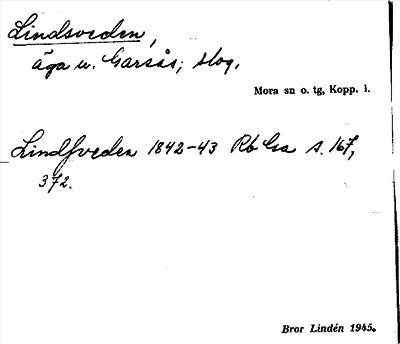 Lindsveden,
äga u. Garsås; skog.
Mora sn o. tg, Kopp. l.
Lindsveden 1842-43 Rb Gsa s. 167,
372.
Bror Lindén 1945.